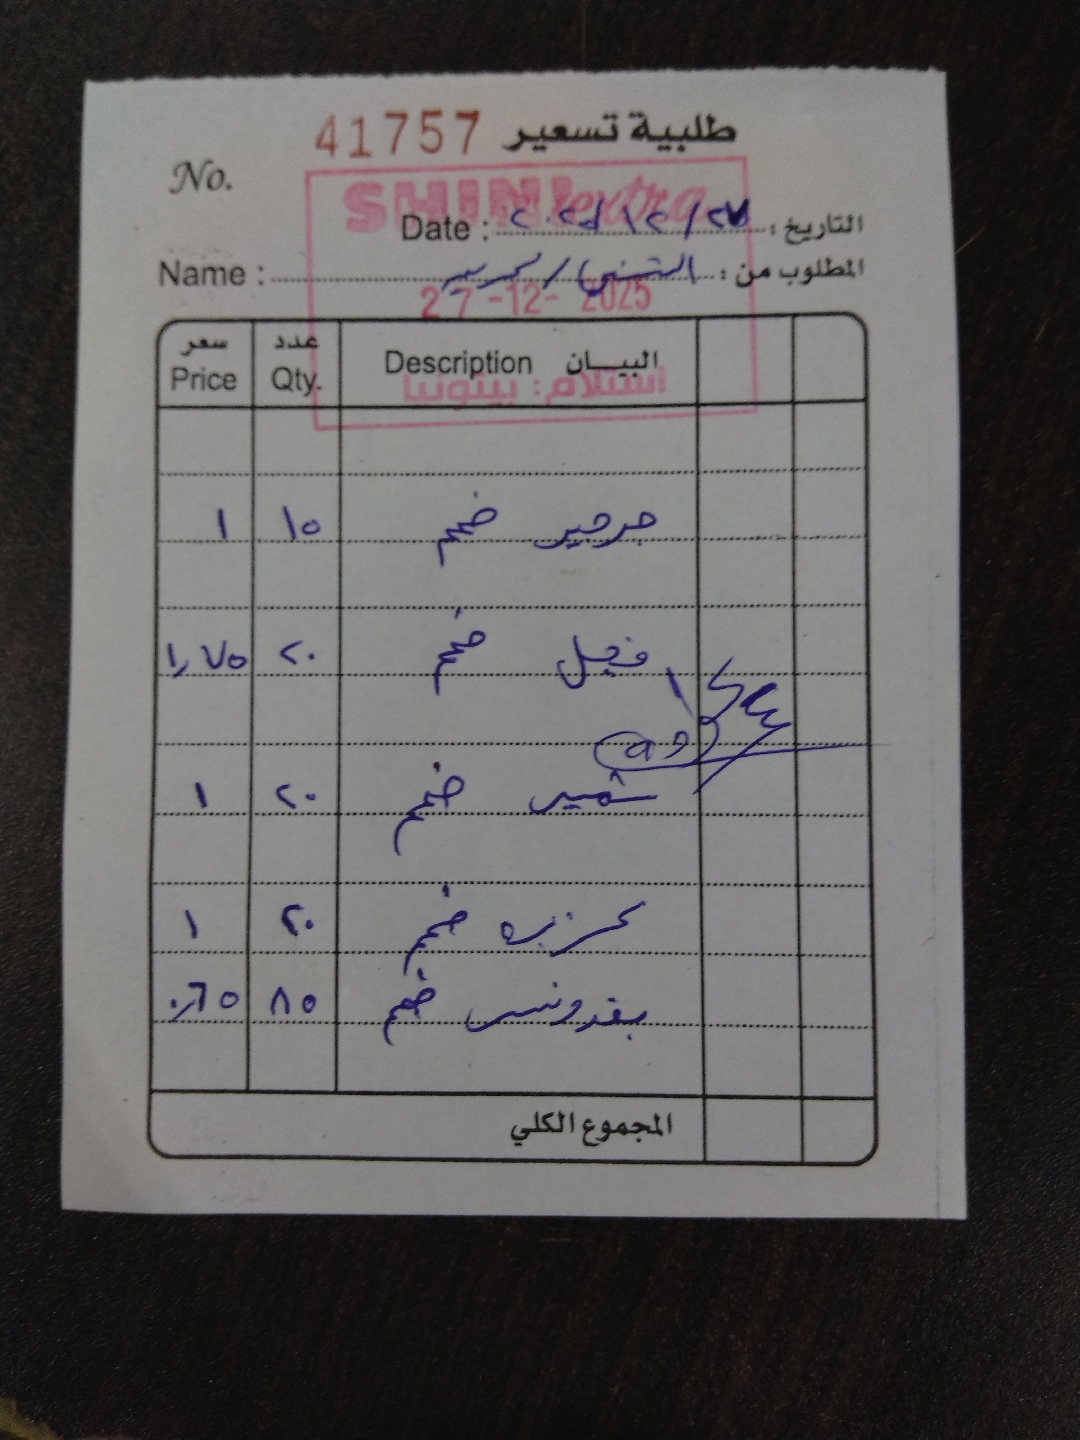 طلبية تسعير 41757
No.
SHINI extra
التاريخ : ٢٠٢٥/١٢/٢٧ : Date
المطلوب من : : Name
27-12-2025
البيان Description عدد Qty. سعر Price
استلام: بينونيا
جرجير ضمم ١٥ ١
فجل ضمم ٢٠ ١,٧٥
شمير ضمم ٢٠ ١
كزبره ضمم ٢٠ ١
بقدونس ضمم ٨٥ ٠,٦٥
المجموع الكلي